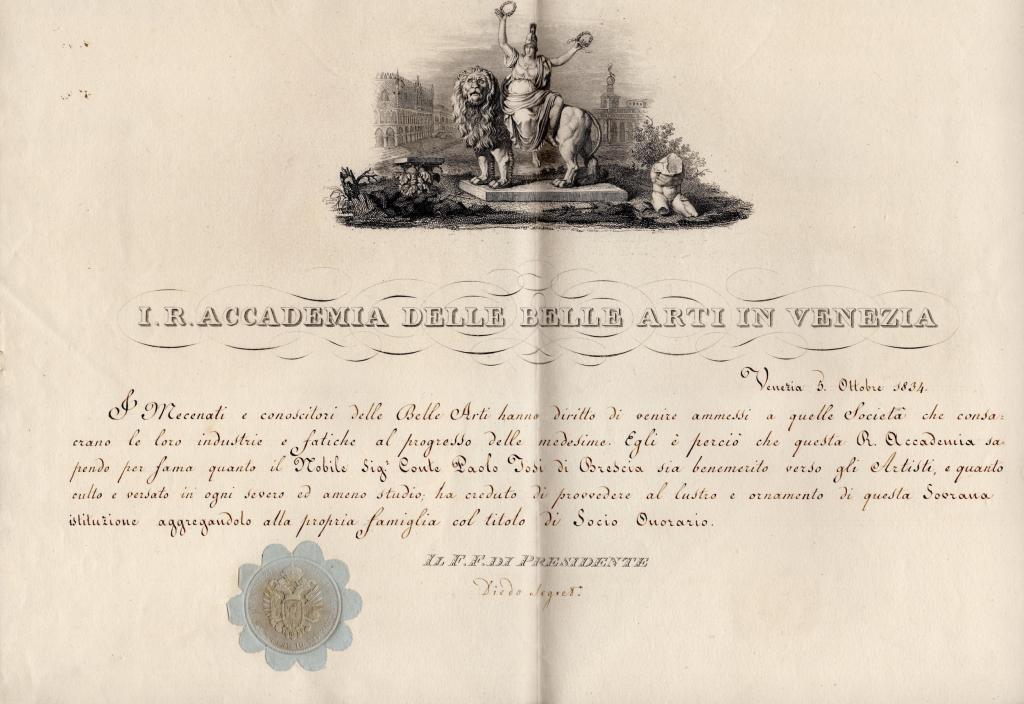 I. R. ACCADEMIA DELLE BELLE ARTI IN VENEZIA
Venezia 5. Ottobre 1834.
I Mecenati e conoscitori delle Belle Arti hanno diritto di venire ammessi a quelle Società che consa=
crano le loro industrie e fatiche al progresso delle medesime. Egli è perciò che questa R. Accademia sa=
pendo per fama quanto il Nobile Sigr. Conte Paolo Tosi di Brescia sia benemerito verso gli Artisti, e quanto
culto e versato in ogni severo ed ameno studio; ha creduto di provvedere al lustro e ornamento di questa Sovrana
istituzione aggregandolo alla propria famiglia col titolo di Socio Onorario.
IL F. F. DI PRESIDENTE
Diedo Segret.o